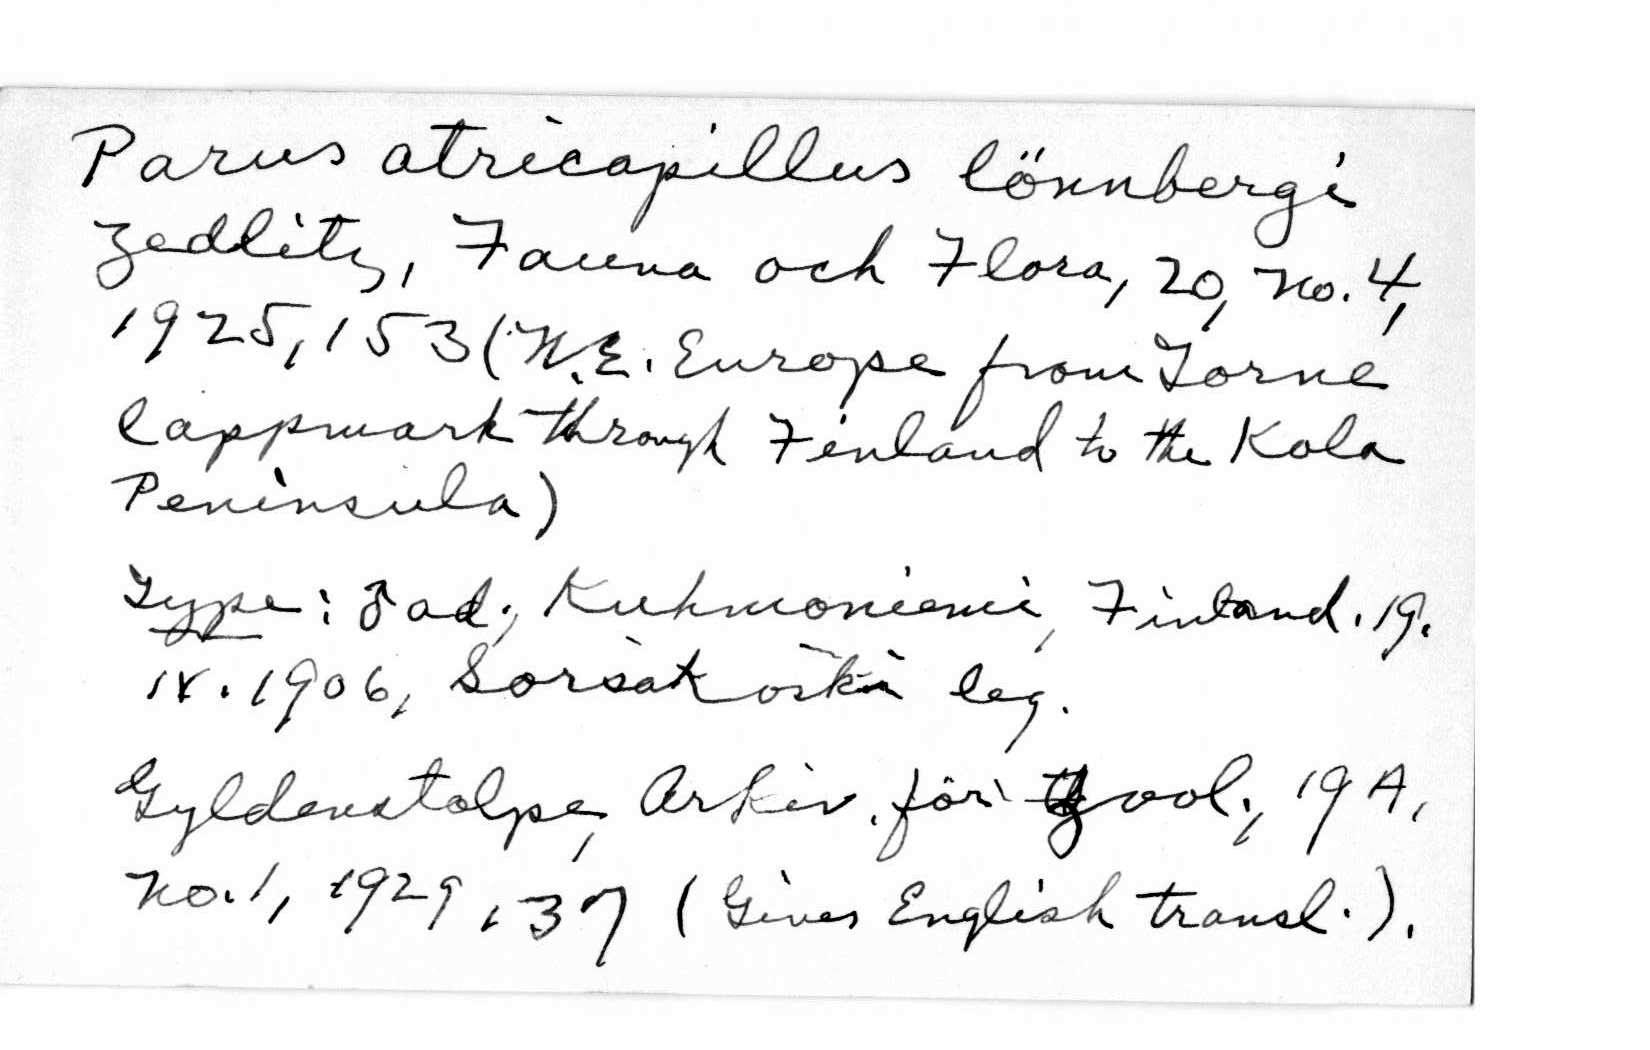 Parus atricapillus lönnbergi
Zedlitz, Fauna och Flora, 20, No. 4,
1925, 153 (N.E. Europe from Torne
lappmark through Finland to the Kola
Peninsula)
Type: ♂ ad., Kuhmoniemi, Finland. 19.
IV. 1906, Sorsakoski leg.
Gyldenstolpe, Arkiv. för Zool., 19 A,
No. 1, 1929, 37 (Gives English transl.).